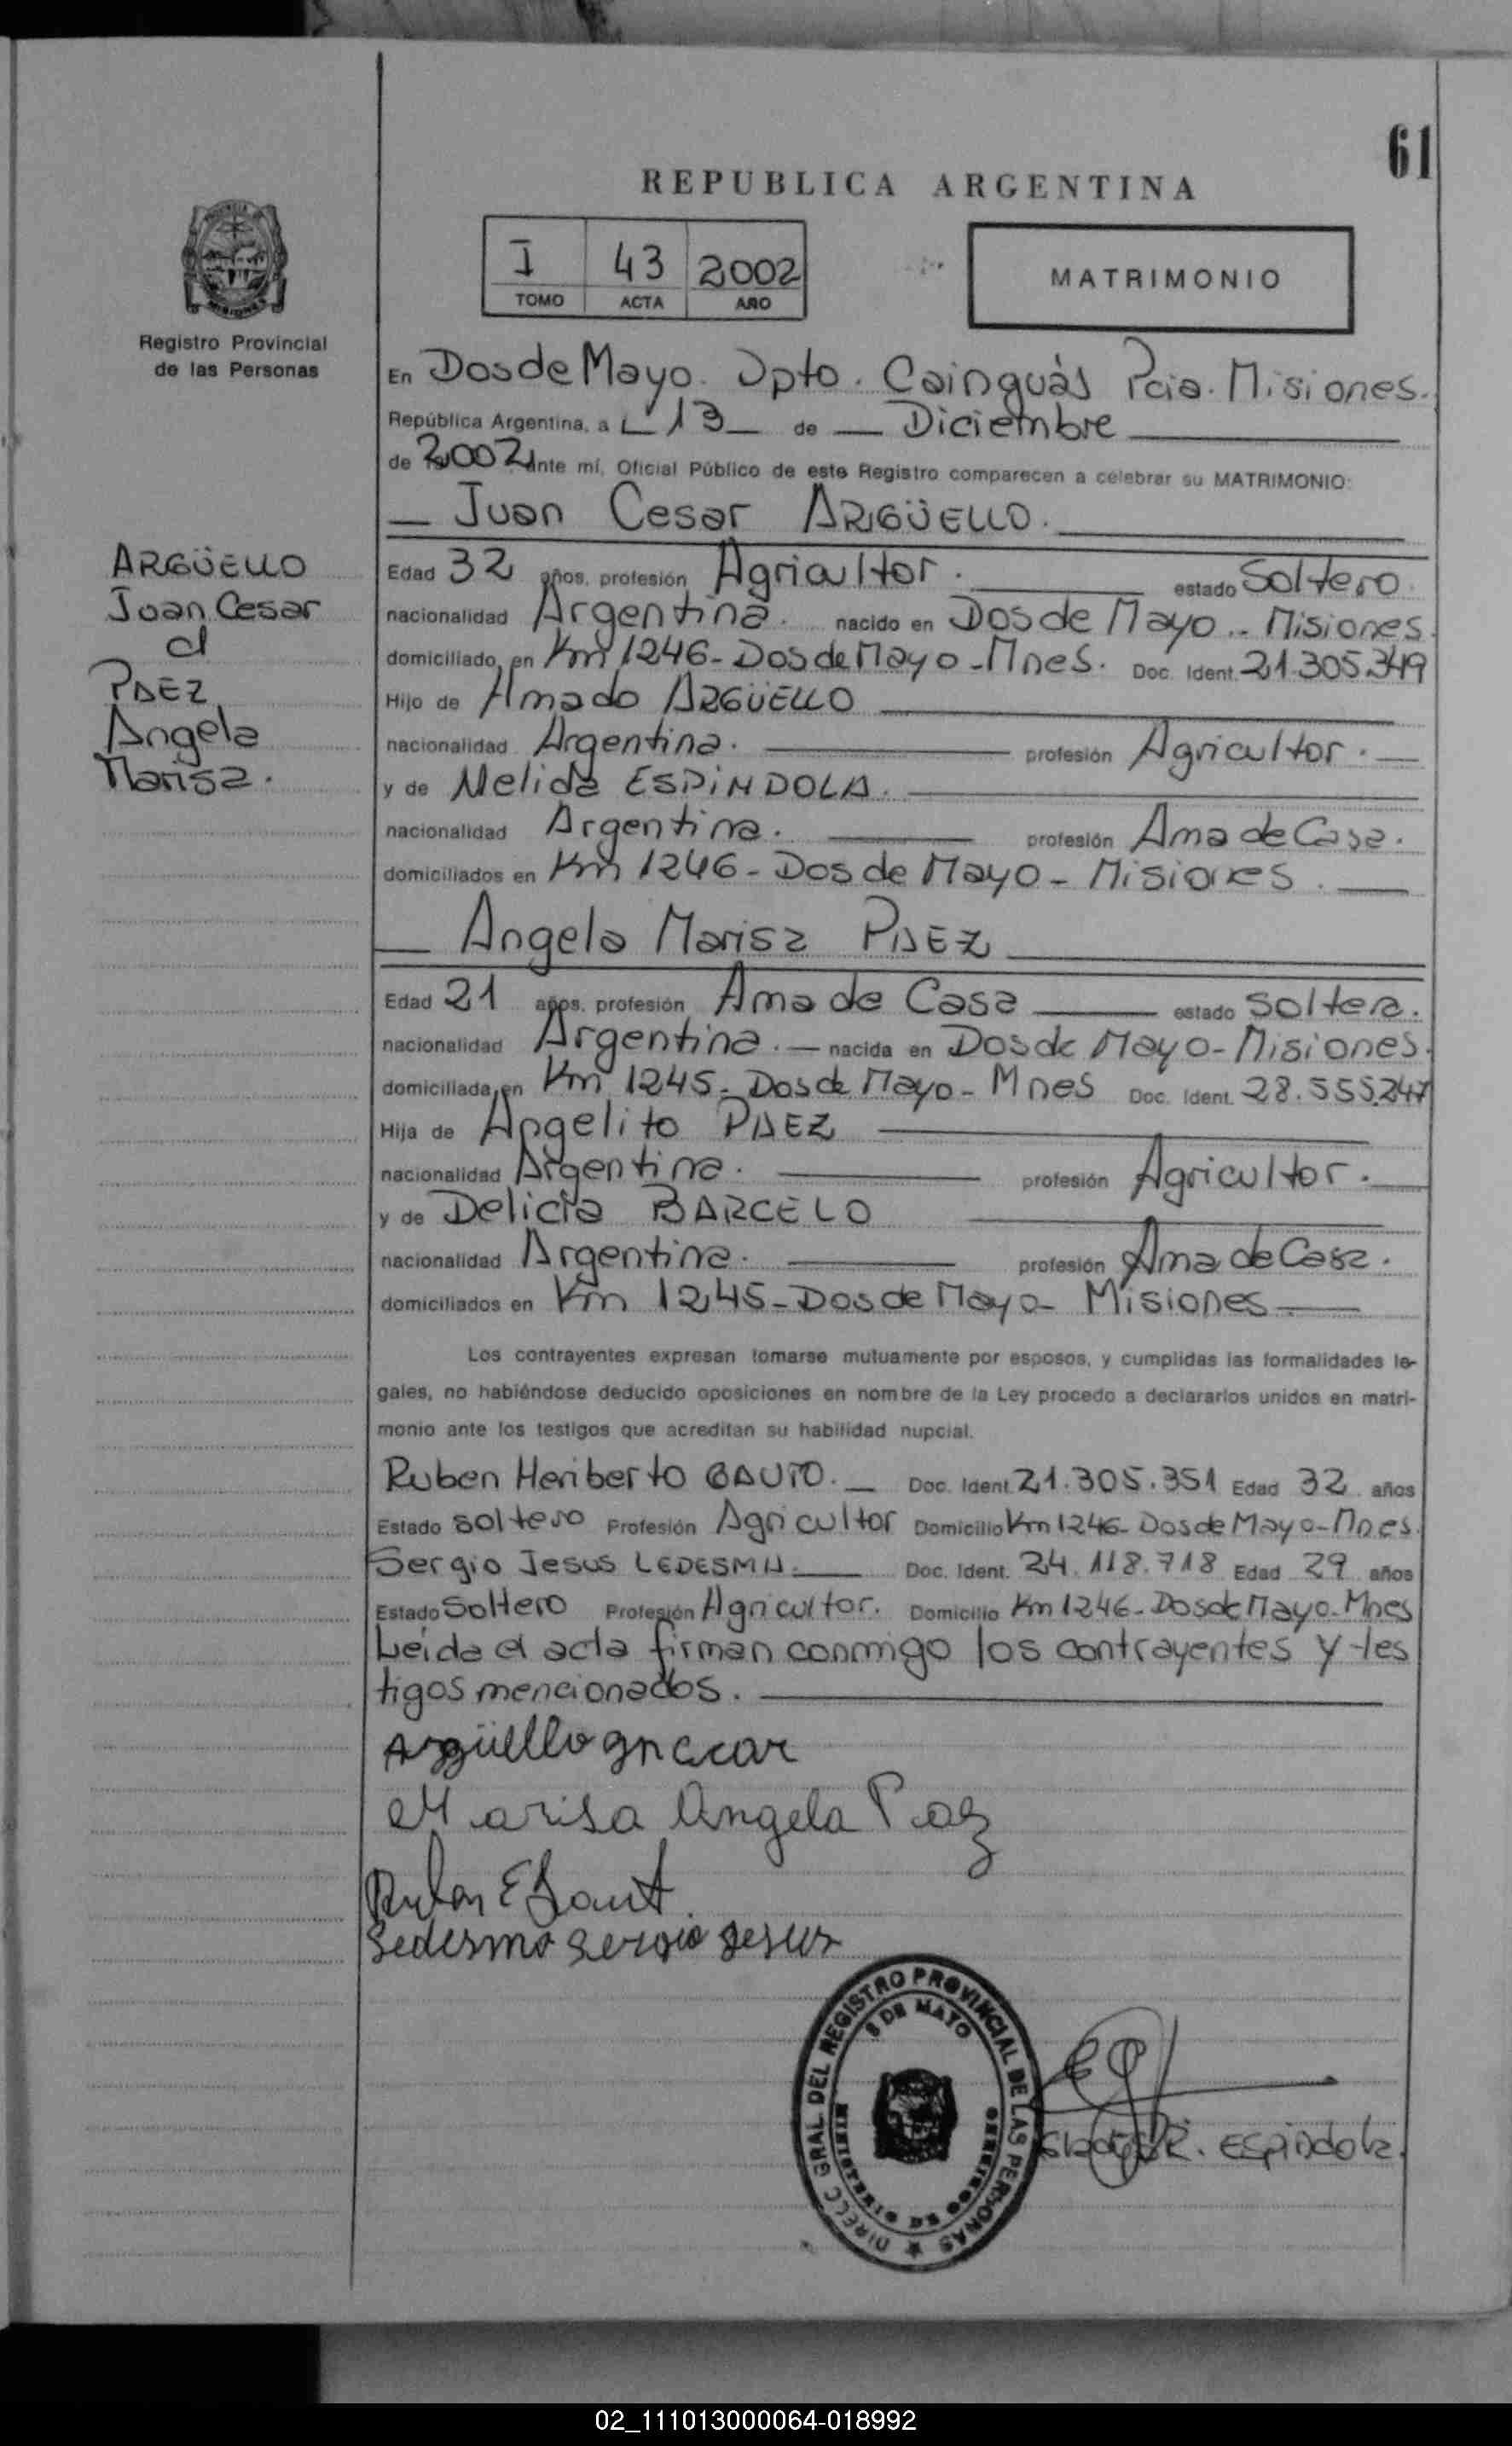 61
REPUBLICA ARGENTINA
I 43 2002
TOMO ACTA AÑO
MATRIMONIO
Registro Provincial
de las Personas
En Dos de Mayo. Dpto. Cainguás Pcia. Misiones.
República Argentina, a 13 de Diciembre
de 2002 ante mí, Oficial Público de este Registro comparecen a celebrar su MATRIMONIO:
Juan Cesar ARGÜELLO.
ARGÜELLO
Juan Cesar
c/
PAEZ
Angela
Marisa.
Edad 32 años, profesión Agricultor. estado Soltero.
nacionalidad Argentina. nacido en Dos de Mayo - Misiones.
domiciliado en Km 1246 - Dos de Mayo - Mnes. Doc. Ident. 21.305.349
Hijo de Amado ARGÜELLO
nacionalidad Argentina. profesión Agricultor.
y de Nelida ESPiNDOLA.
nacionalidad Argentina. profesión Ama de Casa.
domiciliados en Km 1246 - Dos de Mayo - Misiones.
Angela Marisa PAEZ
Edad 21 años, profesión Ama de Casa estado Soltera.
nacionalidad Argentina. nacida en Dos de Mayo - Misiones.
domiciliada en Km 1245 - Dos de Mayo - Mnes Doc. Ident. 28.555.247
Hija de Angelito PAEZ
nacionalidad Argentina. profesión Agricultor.
y de Delicia BARCELO
nacionalidad Argentina. profesión Ama de Casa.
domiciliados en Km 1245 - Dos de Mayo - Misiones
Los contrayentes expresan tomarse mutuamente por esposos, y cumplidas las formalidades le-
gales, no habiéndose deducido oposiciones en nombre de la Ley procedo a declararlos unidos en matri-
monio ante los testigos que acreditan su habilidad nupcial.
Ruben Heriberto GAUTO. Doc. Ident. 21.305.351 Edad 32 años
Estado soltero Profesión Agricultor Domicilio Km 1246 - Dos de Mayo - Mnes.
Sergio Jesus LEDESMA. Doc. Ident. 24.118.718 Edad 29 años
Estado Soltero Profesión Agricultor. Domicilio Km 1246 - Dos de Mayo - Mnes
Leída el acta firman conmigo los contrayentes y tes
tigos mencionados.
Argüello
Marisa Angela Paez
Ruben
Ledesma Sergio Jesus
DIRECC GRAL DEL REGISTRO PROVINCIAL DE LAS PERSONAS
DE MAYO
MINISTERIO DE GOBIERNO
R. Espindola.
02_111013000064-018992